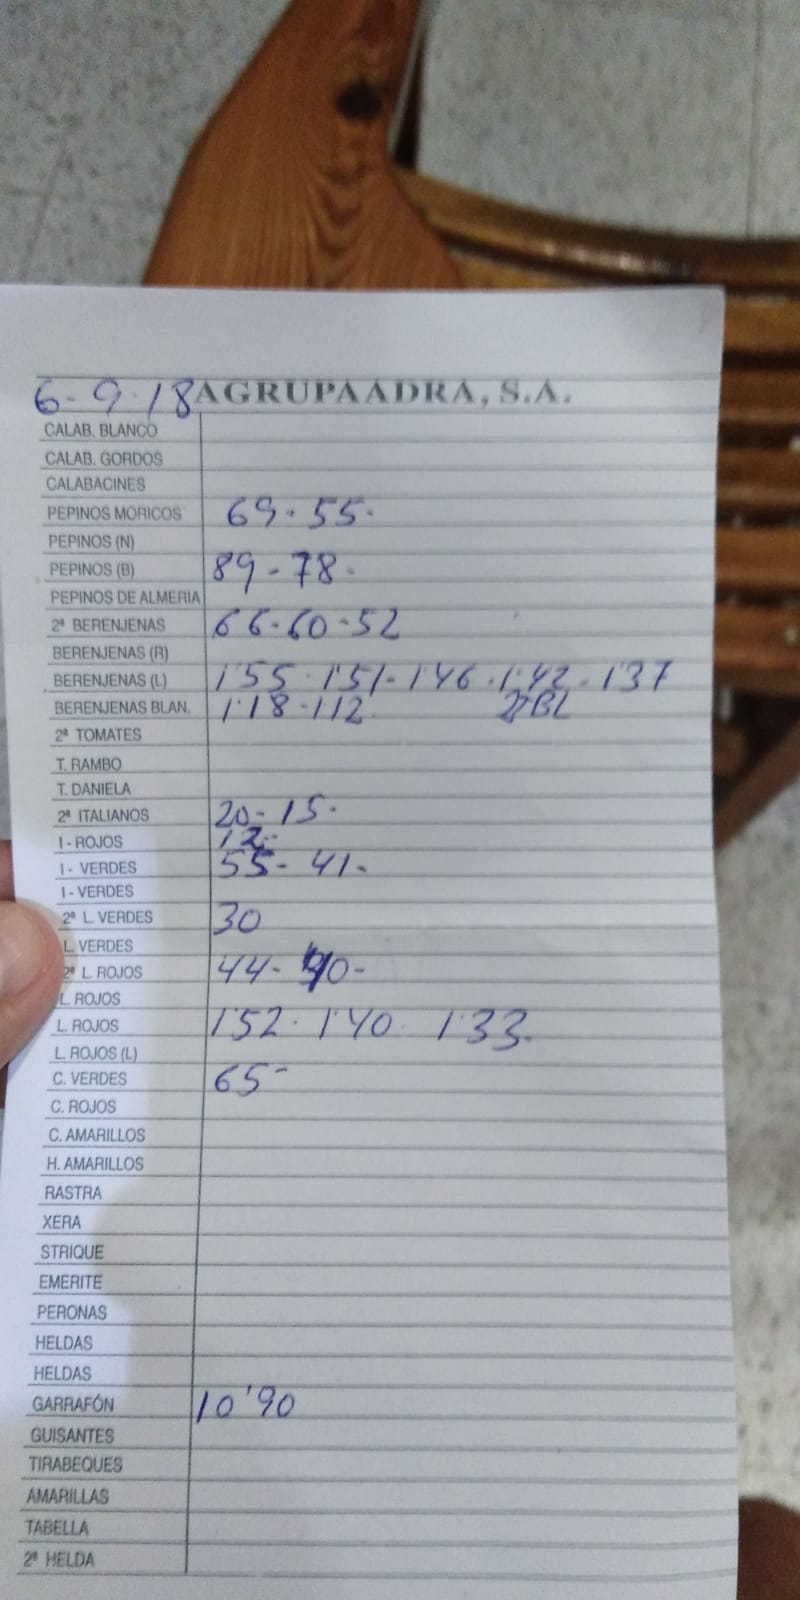 6-9-18 AGRUPAADRA, S.A.
CALAB. BLANCO
CALAB. GORDOS
CALABACINES
PEPINOS MORICOS 69-55-
PEPINOS (N)
PEPINOS (B) 89-78-
PEPINOS DE ALMERIA
2ª BERENJENAS 66-60-52
BERENJENAS (R)
BERENJENAS (L) 1'55-1'51-1'46-1'42-1'37
BERENJENAS BLAN. 1'18-1'12
2ª TOMATES
T. RAMBO
T. DANIELA
2ª ITALIANOS 20-15-
I - ROJOS 12-
I - VERDES 55-41-
I - VERDES
2ª L. VERDES 30
L. VERDES
2ª L. ROJOS 44-40-
L. ROJOS
L. ROJOS 1'52-1'40-1'33-
L. ROJOS (L)
C. VERDES 65-
C. ROJOS
C. AMARILLOS
H. AMARILLOS
RASTRA
XERA
STRIQUE
EMERITE
PERONAS
HELDAS
HELDAS
GARRAFÓN 10'90
GUISANTES
TIRABEQUES
AMARILLAS
TABELLA
2ª HELDA